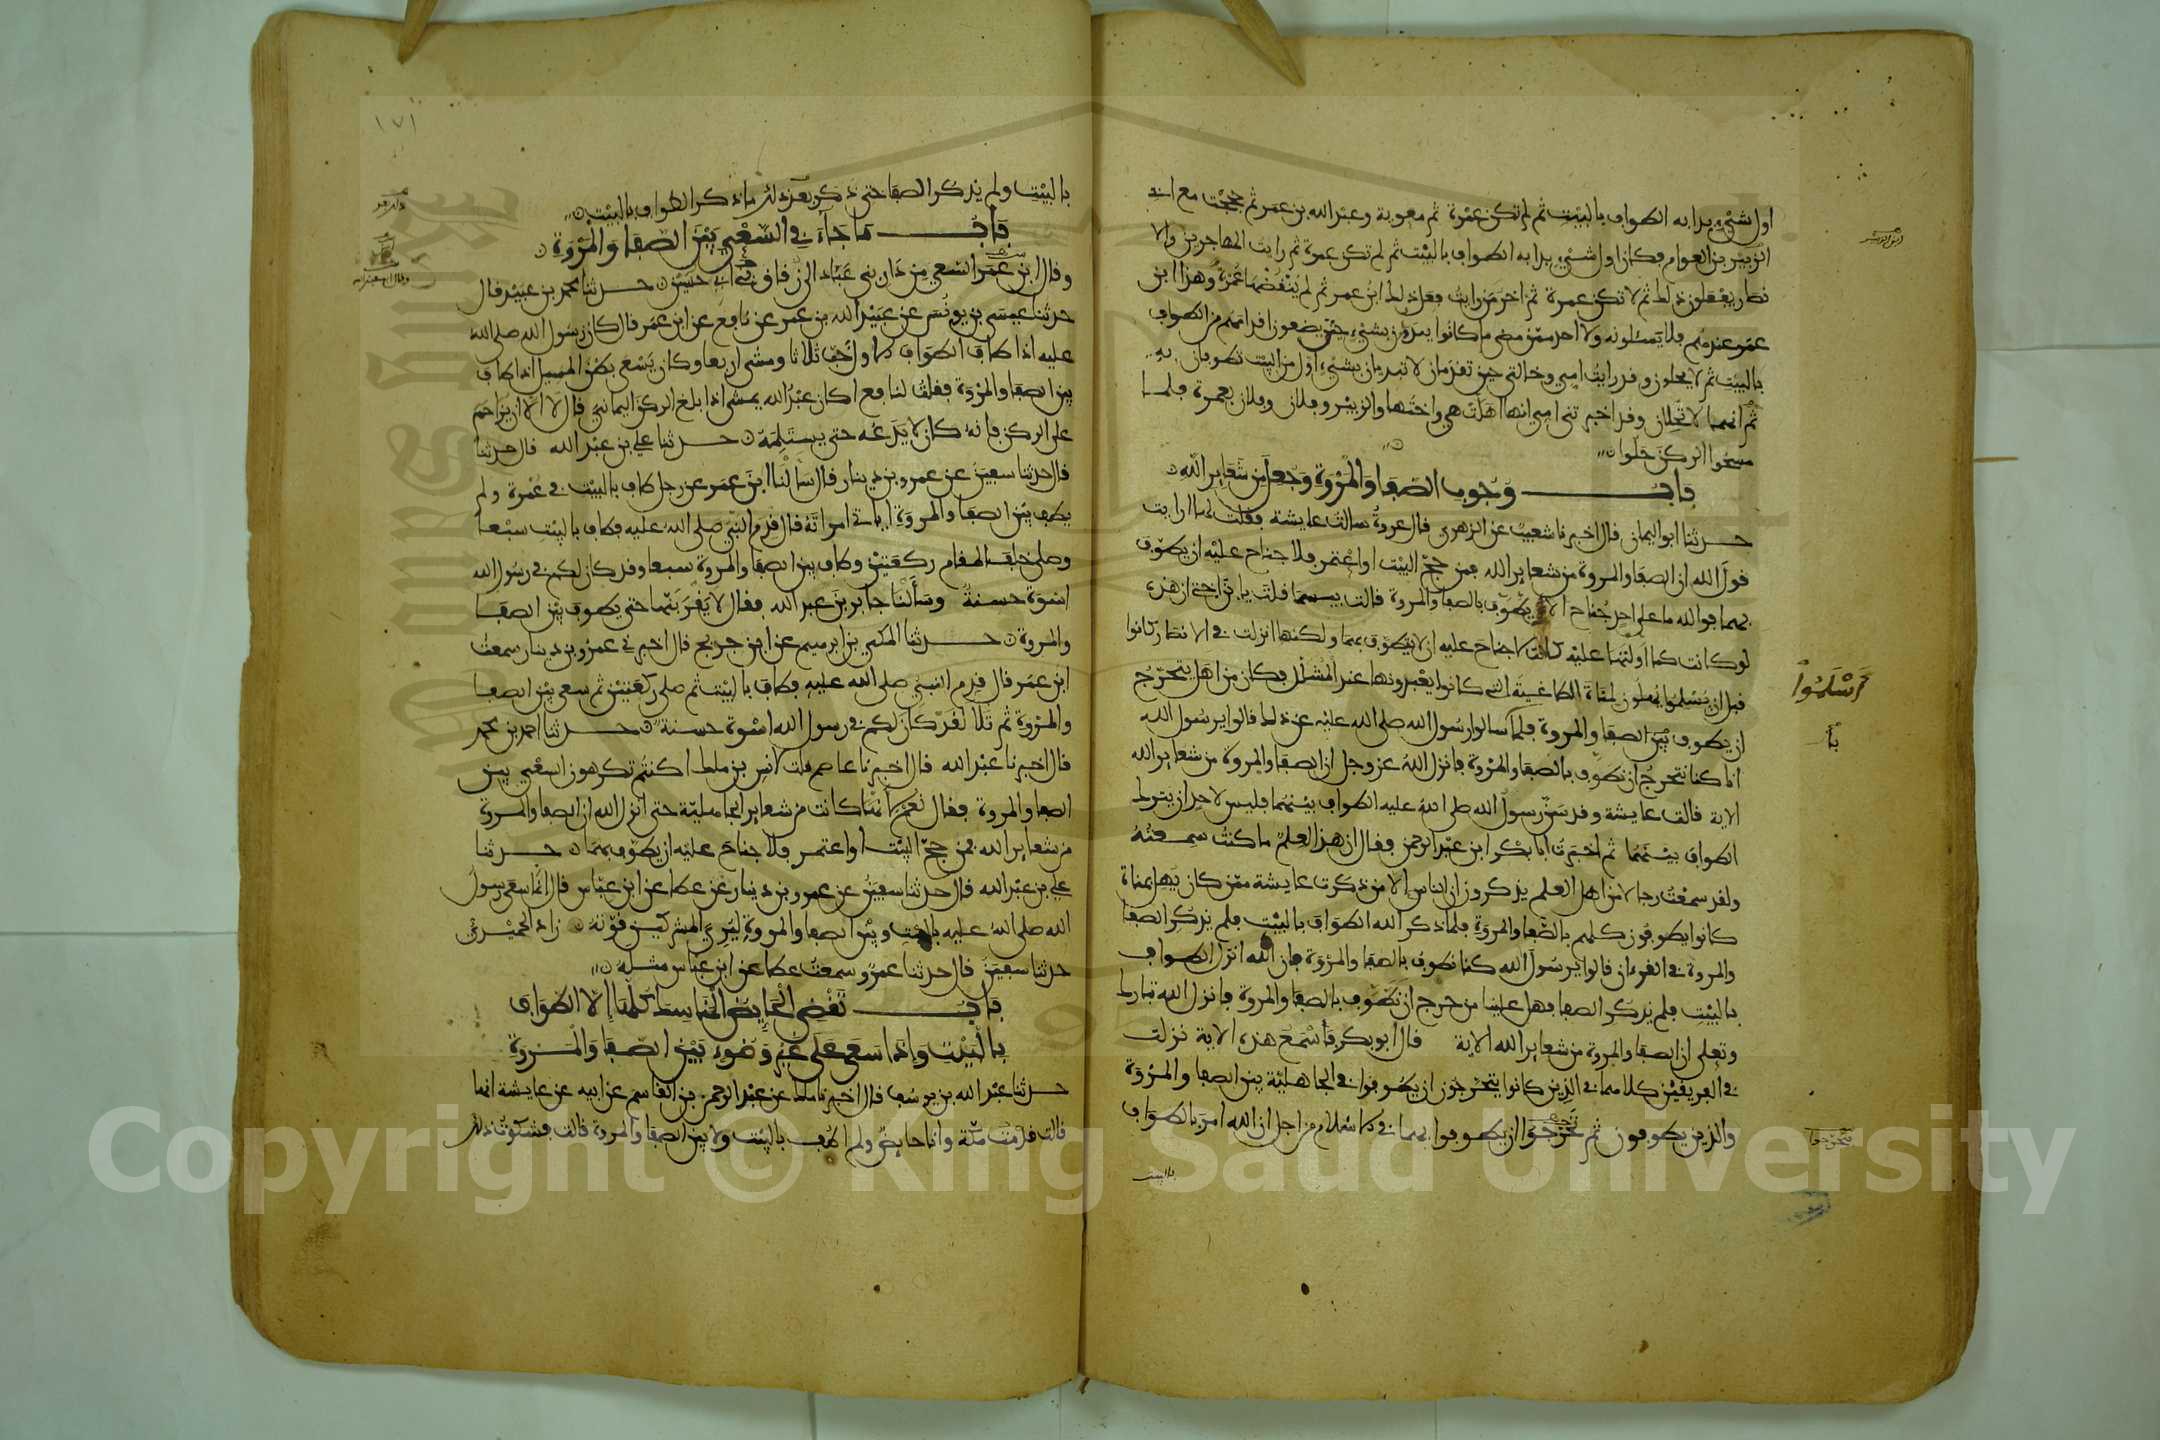 اول شيء بدا به الطواف بالبيت ثم لم تكن عمرة ثم معوية وعبد الله بن عمر ثم حججت مع ابي
الزبير بن العوام فكان اول شيء بدا به الطواف بالبيت ثم لم تكن عمرة ثم رايت المهاجرين والا
نصار يفعلون ذلك ثم لا تكن عمرة ثم اخر من رايت فعل ذلك ابن عمر ثم لم ينقضها عمرة وهذا ابن
عمر عندهم فلا يسئلونه ولا احد ممن مضى ما كانوا يبدءون بشيء حين يضعون اقدامهم من الطواف
بالبيت ثم لا يحلون وقد رايت امي وخالتي حين تقدمان لا تبدءان بشيء اول من البيت تطوفان به
ثم انهما لا تحلان وقد اخبرتني امي انها اهلت هي واختها والزبير وفلان وفلان بعمرة فلما
مسحوا الركن حلوا
باب وجوب الصفا والمروة وجعل من شعاير الله
حدثنا ابو اليمان قال اخبرنا شعيب عن الزهري قال عروة سالت عايشة فقلت لها ارايت
قول الله ان الصفا والمروة من شعاير الله فمن حج البيت او اعتمر فلا جناح عليه ان يطوف
بهما فوالله ما على احد جناح الا يطوف بالصفا والمروة قالت بيسما قلت يا بن اختي ان هذه
لو كانت كما اولتها عليه كانت لا جناح عليه ان لا يطوف بهما ولكنها انزلت في الانصار كانوا
قبل ان يسلموا يهلون لمناة الطاغية التي كانوا يعبدونها عند المشلل فكان من اهل يتحرج
اسلموا
ان يطوف بين الصفا والمروة فلما سالوا رسول الله صلى الله عليه عن ذلك قالوا يرسول الله
انا كنا نتحرج ان نطوف بالصفا والمروة فانزل الله عز وجل ان الصفا والمروة من شعاير الله
الاية قالت عايشة وقد سن رسول الله صلى الله عليه الطواف بينهما فليس لاحد ان يترك
الطواف بينهما ثم اخبرت ابا بكر ابن عبد الرحمن فقال ان هذا العلم ما كنت سمعته
ولقد سمعت رجالا من اهل العلم يذكرون ان الناس الا من ذكرت عايشة ممن كان يهل بمناة
كانوا يطوفون كلهم بالصفا والمروة فلما ذكر الله الطواف بالبيت فلم يذكر الصفا
والمروة في القرءان قالوا يرسول الله كنا نطوف بالصفا والمروة فان الله انزل الطواف
بالبيت فلم يذكر الصفا فهل علينا من حرج ان نطوف بالصفا والمروة فانزل الله تبارك
وتعلى ان الصفا والمروة من شعاير الله الاية قال ابو بكر فاسمع هذه الاية نزلت
في الفريقين كلاهما في الذين كانوا يتحرجون ان يطوفوا في الجاهلية بين الصفا والمروة
والذين يطوفون ثم تحرجوا ان يطوفوا بهما في الاسلام من اجل ان الله امر بالطواف
بالبيت
١٧١
بالبيت ولم يذكر الصفا حتى ذكر بعد ذلك ما ذكر الطواف بالبيت
باب ما جاء في السعي بين الصفا والمروة
وقال ابن عمر السعي من دار بني عباد الى زقاق بني ابي حسين حدثنا محمد بن عبيد قال
حدثنا عيسى بن يونس عن عبيد الله بن عمر عن نافع عن ابن عمر قال كان رسول الله صلى الله
عليه اذا طاف الطواف الاول خب ثلاثا ومشى اربعا وكان يسعى بطن المسيل اذا طاف
بين الصفا والمروة فقلت لنافع اكان عبد الله يمشي اذا بلغ الركن اليماني قال لا الا ان يزاحم
على الركن فانه كان لا يدعه حتى يستلمه حدثنا علي بن عبد الله قال حدثنا
قال حدثنا سفين عن عمرو بن دينار قال سالنا ابن عمر عن رجل طاف بالبيت في عمرة ولم
يطف بين الصفا والمروة اياتي امراته قال قدم النبي صلى الله عليه فطاف بالبيت سبعا
وصلى خلف المقام ركعتين وطاف بين الصفا والمروة سبعا وقد كان لكم في رسول الله
اسوة حسنة وسالنا جابر بن عبد الله فقال لا يقربنها حتى يطوف بين الصفا
والمروة حدثنا المكي بن ابرهيم عن ابن جريج قال اخبرني عمرو بن دينار سمعت
ابن عمر قال قدم النبي صلى الله عليه فطاف بالبيت ثم صلى ركعتين ثم سعى بين الصفا
والمروة ثم تلا لقد كان لكم في رسول الله اسوة حسنة حدثنا احمد بن محمد
قال اخبرنا عبد الله قال اخبرنا عاصم قلت لانس بن ملك اكنتم تكرهون السعي بين
الصفا والمروة فقال نعم لانها كانت من شعاير الجاهلية حتى انزل الله ان الصفا والمروة
من شعاير الله فمن حج البيت او اعتمر فلا جناح عليه ان يطوف بهما حدثنا
علي بن عبد الله قال حدثنا سفين عن عمرو بن دينار عن عطا عن ابن عباس قال انما سعى رسول
الله صلى الله عليه بالبيت وبين الصفا والمروة ليري المشركين قوته زاد الحميدي
حدثنا سفين قال حدثنا عمرو سمعت عطا عن ابن عباس مثله
باب تقض الحايض المناسك كلها الا الطواف
بالبيت واذا سعى على غير وضوء بين الصفا والمروة
حدثنا عبد الله بن يوسف قال اخبرنا ملك عن عبد الرحمن بن القاسم عن ابيه عن عايشة انها
قالت قدمت مكة وانا حايض ولم اطف بالبيت ولا بين الصفا والمروة قالت فشكوت ذلك
Copyright © King Saud University